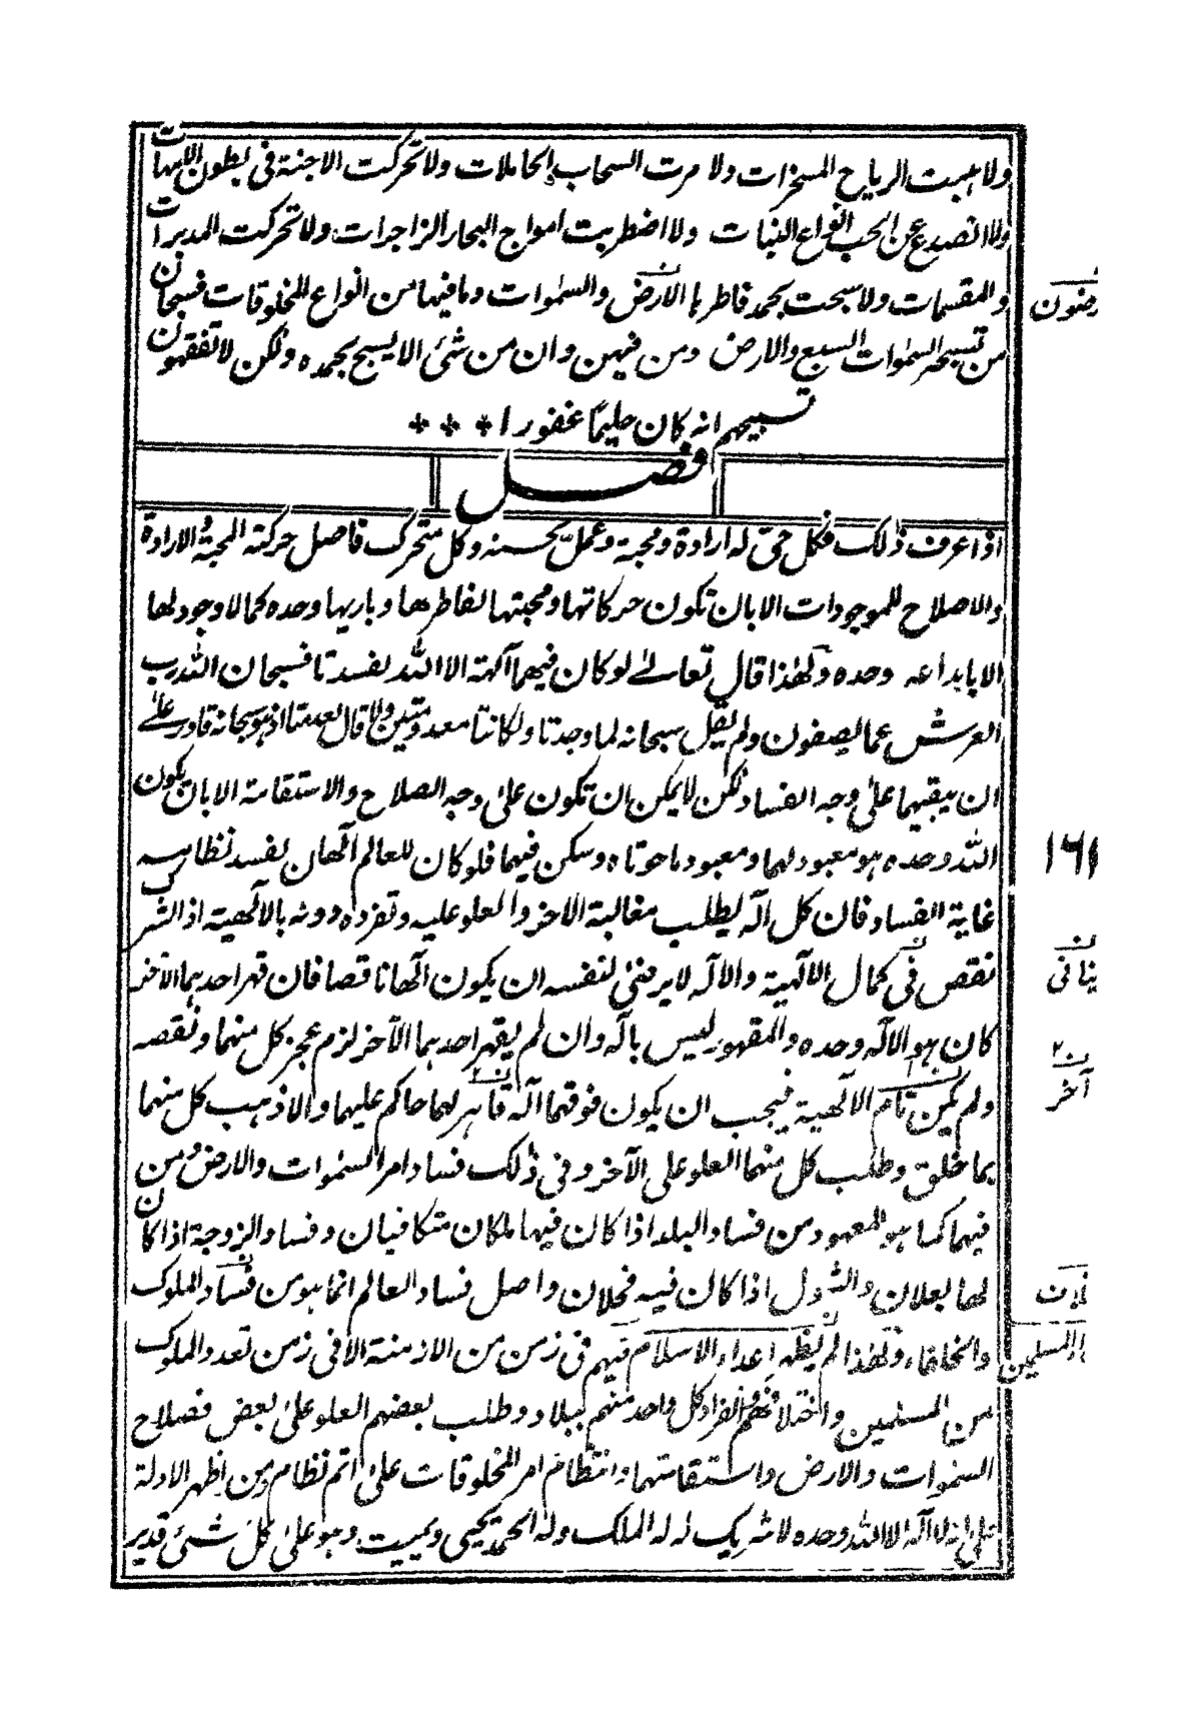 ولا هبت الرياح المسخرات ولا مرت السحاب الحاملات ولا تحركت الاجنة فى بطون الامهات
ولا انصدع عن الحب انواع النبات ولا اضطربت امواج البحار الزاجرات ولا تحركت المدبرات
والمقسمات ولا سبحت بحمد فاطرها الارض والسموات وما فيها من انواع المخلوقات فسبحان
من تسبحه السموات السبع والارض ومن فيهن وان من شئ الا يسبح بحمده ولكن لا تفقهون
تسبيحهم انه كان حليما غفورا
فصل
اذا عرف ذلك فكل حى له ارادة ومحبة وعمل بحسبه وكل متحرك فاصل حركته المحبة والارادة
والاصلاح للموجودات الا بان تكون حركاتها ومحبتها لفاطرها وباريها وحده كما لا وجود لها
الا بابداعه وحده ولهذا قال تعالى لو كان فيهما آلهة الا الله لفسدتا فسبحان الله رب
العرش عما يصفون ولم يقل سبحانه لما وجدتا ولكانتا معدومتين ولا قال لعدمتا اذ هو سبحانه قادر على
ان يبقيهما على وجه الفساد لكن لا يمكن ان تكون على وجه الصلاح والاستقامة الا بان يكون
الله وحده هو معبودهما ومعبود ما حوتاه وسكن فيهما فلو كان للعالم الهان لفسد نظامه
غاية الفساد فان كل اله يطلب مغالبة الآخر والعلو عليه وتفرده دونه بالالهية اذ الشرك
نقص فى كمال الالهية والاله لا يرضى لنفسه ان يكون الها ناقصا فان قهر احدهما الآخر
كان هو الاله وحده والمقهور ليس باله وان لم يقهر احدهما الآخر لزم عجز كل منهما ونقصه
ولم يكن تام الالهية فيجب ان يكون فوقهما اله قاهر لهما حاكم عليهما والا ذهب كل منهما
بما خلق وطلب كل منهما العلو على الآخر وفى ذلك فساد امر السموات والارض ومن
فيهما كما هو المعهود من فساد البلد اذا كان فيها ملكان متكافيان وفساد الزوجة اذا كان
لها بعلان والشول اذا كان فيه فحلان واصل فساد العالم انما هو من فساد الملوك
والخلفاء ولهذا لم يظهر اعداء الاسلام فيهم فى زمن من الازمنة الا فى زمن تعدد الملوك
من المسلمين واختلافهم وانفراد كل واحد منهم ببلاد وطلب بعضهم العلو على بعض فصلاح
السموات والارض واستقامتهما وانتظام امر المخلوقات على اتم نظام من اظهر الادلة
على انه لا اله الا الله وحده لا شريك له له الملك وله الحمد يحيى ويميت وهو على كل شئ قدير
رضون
ينافى
آخر